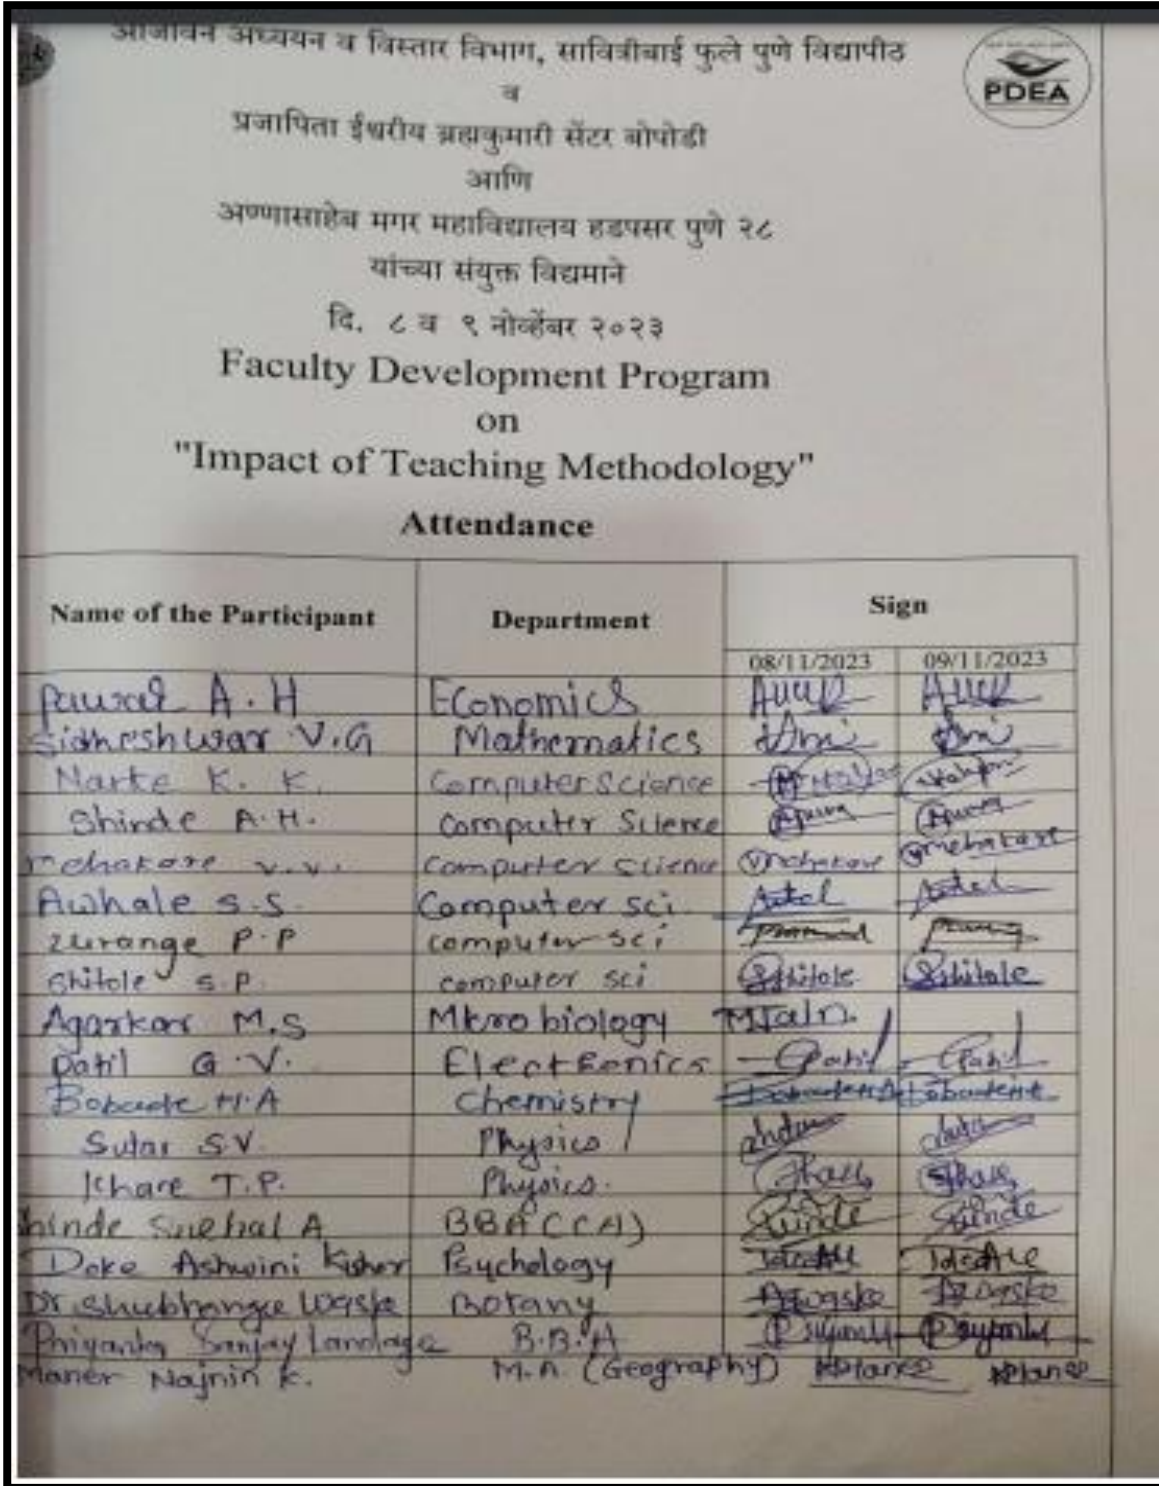 आजीवन अध्ययन व विस्तार विभाग, सावित्रीबाई फुले पुणे विद्यापीठ
PDEA
व
प्रजापिता ईश्वरीय ब्रह्मकुमारी सेंटर बोपोडी
आणि
अण्णासाहेब मगर महाविद्यालय हडपसर पुणे २८
यांच्या संयुक्त विद्यमाने
दि. ८ व ९ नोव्हेंबर २०२३
Faculty Development Program
on
"Impact of Teaching Methodology"
Attendance
Name of the Participant Department Sign
08/11/2023 09/11/2023
A.H Economics
Sidheshwar V.G Mathematics
Narke K. K. Computer Science
Shinde A.H. Computer Science
mehakare v.v. Computer Science mehakare mehakare
Awhale S.S. Computer sci
Zurange P.P computer sci
Shitole S.P. computer sci Shitole Shitole
Agarkar M.S Microbiology
Patil G.V. Electronics Patil Patil
Bobade H.A Chemistry
Sutar S.V. Physics
Khare T.P. Physics.
hinde Snehal A BBA (CA)
Doke Ashwini Kishor Psychology
Dr. Shubhangee Waske Botany
Priyanka Sanjay Landage B.B.A
Maner Najnin K. M.A. (Geography)